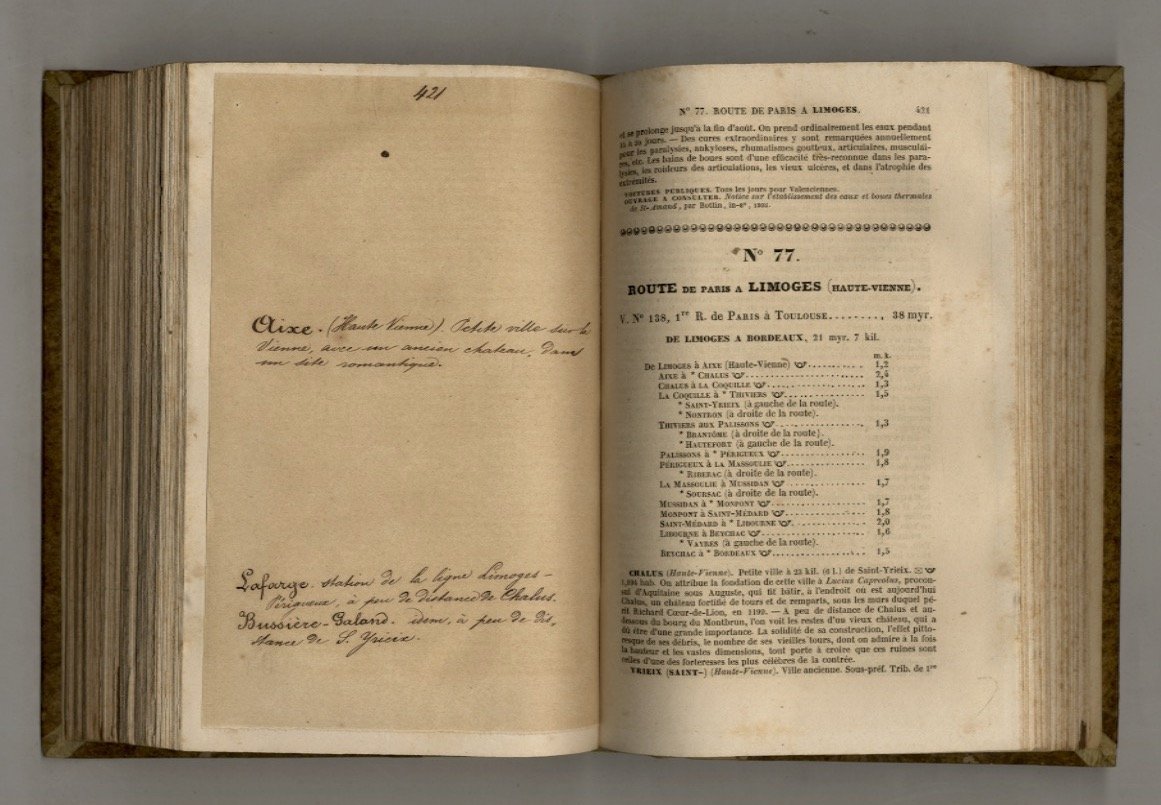 421
Aixe. (Haute Vienne). Petite ville sur la
Vienne, avec un ancien chateau, dans
un site romantique.
Lafarge. station de la ligne Limoges-
Périgueux, à peu de distance de Chalus.
Bussière-Galand. idem, à peu de dis-
stance de S. Yrieix.
N° 77. ROUTE DE PARIS A LIMOGES. 421
et se prolonge jusqu'à la fin d'août. On prend ordinairement les eaux pendant
15 à 25 jours. — Des cures extraordinaires y sont remarquées annuellement
pour les paralysies, ankyloses, rhumatismes goutteux, articulaires, musculai-
res, etc. Les bains de boues sont d'une efficacité très-reconnue dans les para-
lysies, les roideurs des articulations, les vieux ulcères, et dans l'atrophie des
extrémités.
VOITURES PUBLIQUES. Tous les jours pour Valenciennes.
OUVRAGE A CONSULTER. Notice sur l'établissement des eaux et boues thermales
de St-Amand, par Bottin, in-8°,
N° 77.
ROUTE DE PARIS A LIMOGES (HAUTE-VIENNE).
V. N° 138, 1re R. de PARIS à TOULOUSE........, 38 myr.
DE LIMOGES A BORDEAUX, 21 myr. 7 kil.
m. k.
DE LIMOGES à AIXE (Haute-Vienne) .......... 1,2
AIXE à * CHALUS .......... 2,4
CHALUS à LA COQUILLE .......... 1,3
LA COQUILLE à * THIVIERS .......... 1,5
* SAINT-YRIEIX (à gauche de la route).
* NONTRON (à droite de la route).
THIVIERS aux PALISSONS .......... 1,3
* BRANTÔME (à droite de la route).
* HAUTEFORT (à gauche de la route).
PALISSONS à * PÉRIGUEUX .......... 1,9
PÉRIGUEUX à LA MASSOULIE .......... 1,8
* RIBERAC (à droite de la route).
LA MASSOULIE à MUSSIDAN .......... 1,7
* SOURSAC (à droite de la route).
MUSSIDAN à * MONPONT .......... 1,7
MONPONT à SAINT-MÉDARD .......... 1,8
SAINT-MÉDARD à * LIBOURNE .......... 2,0
LIBOURNE à BEYCHAC .......... 1,6
* VAYRES (à gauche de la route).
BEYCHAC à * BORDEAUX .......... 1,5
CHALUS (Haute-Vienne). Petite ville à 23 kil. (6 l.) de Saint-Yrieix.
1,994 hab. On attribue la fondation de cette ville à Lucius Capreolus, procon-
sul d'Aquitaine sous Auguste, qui fit bâtir, à l'endroit où est aujourd'hui
Chalus, un château fortifié de tours et de remparts, sous les murs duquel pé-
rit Richard Cœur-de-Lion, en 1199. — A peu de distance de Chalus et au-
dessous du bourg du Montbrun, l'on voit les restes d'un vieux château, qui a
dû être d'une grande importance. La solidité de sa construction, l'effet pitto-
resque de ses débris, le nombre de ses vieilles tours, dont on admire à la fois
la hauteur et les vastes dimensions, tout porte à croire que ces ruines sont
celles d'une des forteresses les plus célèbres de la contrée.
YRIEIX (SAINT-) (Haute-Vienne). Ville ancienne. Sous-préf. Trib. de 1re